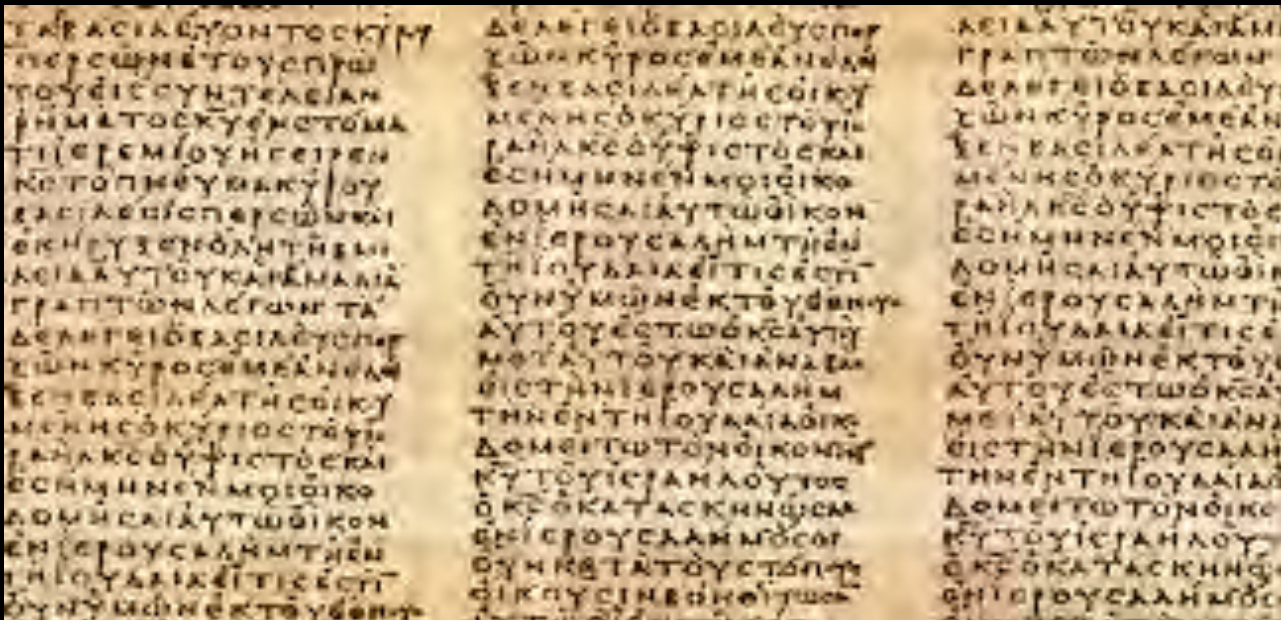 ΤΑΒΑCΙΛΕΥΟΝΤΟCΚΥΡΟΥ
ΠΕΡCΩΝΕΤΟΥCΠΡΩ
ΤΟΥΕΙCCΥΝΤΕΛΕΙΑΝ
ΡΗΜΑΤΟCΚΥΕΝCΤΟΜΑ
ΤΙΙΕΡΕΜΙΟΥΗΓΕΙΡΕΝ
ΚCΤΟΠΝΕΥΜΑΚΥΡΟΥ
ΒΑCΙΛΕΩCΠΕΡCΩΝΚΑΙ
ΕΚΗΡΥΞΕΝΟΛΗΤΗΒΑCΙ
ΛΕΙΑΑΥΤΟΥΚΑΙΑΜΑΔΙΑ
ΓΡΑΠΤΩΝΛΕΓΩΝΤΑ
ΔΕΛΕΓΕΙΟΒΑCΙΛΕΥCΠΕΡ
CΩΝΚΥΡΟCΕΜΕΑΝΕΔΕΙ
ΞΕΝΒΑCΙΛΕΑΤΗCΟΙΚΟΥ
ΜΕΝΗCΟΚΥΡΙΟCΤΟΥΙC
ΡΑΗΛΚCΟΥΨΙCΤΟCΚΑΙ
ΕCΗΜΗΝΕΝΜΟΙΟΙΚΟ
ΔΟΜΗCΑΙΑΥΤΩΟΙΚΟΝ
ΕΝΙΕΡΟΥCΑΛΗΜΤΗΕΝ
ΤΗΙΟΥΔΑΙΑΕΙΤΙCΕCΤΙ
ΟΥΝΥΜΩΝΕΚΤΟΥΕΘΝΟΥC
ΔΕΛΕΓΕΙΟΒΑCΙΛΕΥCΠΕΡ
CΩΝΚΥΡΟCΕΜΕΑΝΕΔΕΙ
ΞΕΝΒΑCΙΛΕΑΤΗCΟΙΚΟΥ
ΜΕΝΗCΟΚΥΡΙΟCΤΟΥΙC
ΡΑΗΛΚCΟΥΨΙCΤΟCΚΑΙ
ΕCΗΜΗΝΕΝΜΟΙΟΙΚΟ
ΔΟΜΗCΑΙΑΥΤΩΟΙΚΟΝ
ΕΝΙΕΡΟΥCΑΛΗΜΤΗΕΝ
ΤΗΙΟΥΔΑΙΑΕΙΤΙCΕCΤΙ
ΟΥΝΥΜΩΝΕΚΤΟΥΕΘΝΟΥC
ΑΥΤΟΥΕCΤΩΟΚCΑΥΤΟΥ
ΜΕΤΑΥΤΟΥΚΑΙΑΝΑΒΑC
ΕΙCΤΗΝΙΕΡΟΥCΑΛΗΜ
ΤΗΝΕΝΤΗΙΟΥΔΑΙΑΟΙΚΟ
ΔΟΜΕΙΤΩΤΟΝΟΙΚΟΝΤΟΥ
ΚΥΤΟΥΙCΡΑΗΛΟΥΤΟC
ΟΚCΟΚΑΤΑCΚΗΝΩCΑC
ΕΝΙΕΡΟΥCΑΛΗΜΟCΟΙ
ΟΥΝΚΑΤΑΤΟΥCΤΟΠΟΥC
ΟΙΚΟΥCΙΝΒΟΗΘΕΙΤΩCΑΝ
ΛΕΙΑΑΥΤΟΥΚΑΙΑΜ
ΓΡΑΠΤΩΝΛΕΓΩΝ
ΔΕΛΕΓΕΙΟΒΑCΙΛΕΥ
CΩΝΚΥΡΟCΕΜΕΑΝ
ΞΕΝΒΑCΙΛΕΑΤΗCΟΙ
ΜΕΝΗCΟΚΥΡΙΟCΤΟ
ΡΑΗΛΚCΟΥΨΙCΤΟC
ΕCΗΜΗΝΕΝΜΟΙΟΙ
ΔΟΜΗCΑΙΑΥΤΩΟΙΚ
ΕΝΙΕΡΟΥCΑΛΗΜΤΗ
ΤΗΙΟΥΔΑΙΑΕΙΤΙCΕ
ΟΥΝΥΜΩΝΕΚΤΟΥ
ΑΥΤΟΥΕCΤΩΟΚCΑ
ΜΕΤΑΥΤΟΥΚΑΙΑΝΑ
ΕΙCΤΗΝΙΕΡΟΥCΑΛΗ
ΤΗΝΕΝΤΗΙΟΥΔΑΙΑΟ
ΔΟΜΕΙΤΩΤΟΝΟΙΚΟ
ΚΥΤΟΥΙCΡΑΗΛΟΥΤ
ΟΚCΟΚΑΤΑCΚΗΝΩ
ΕΝΙΕΡΟΥCΑΛΗΜΟC